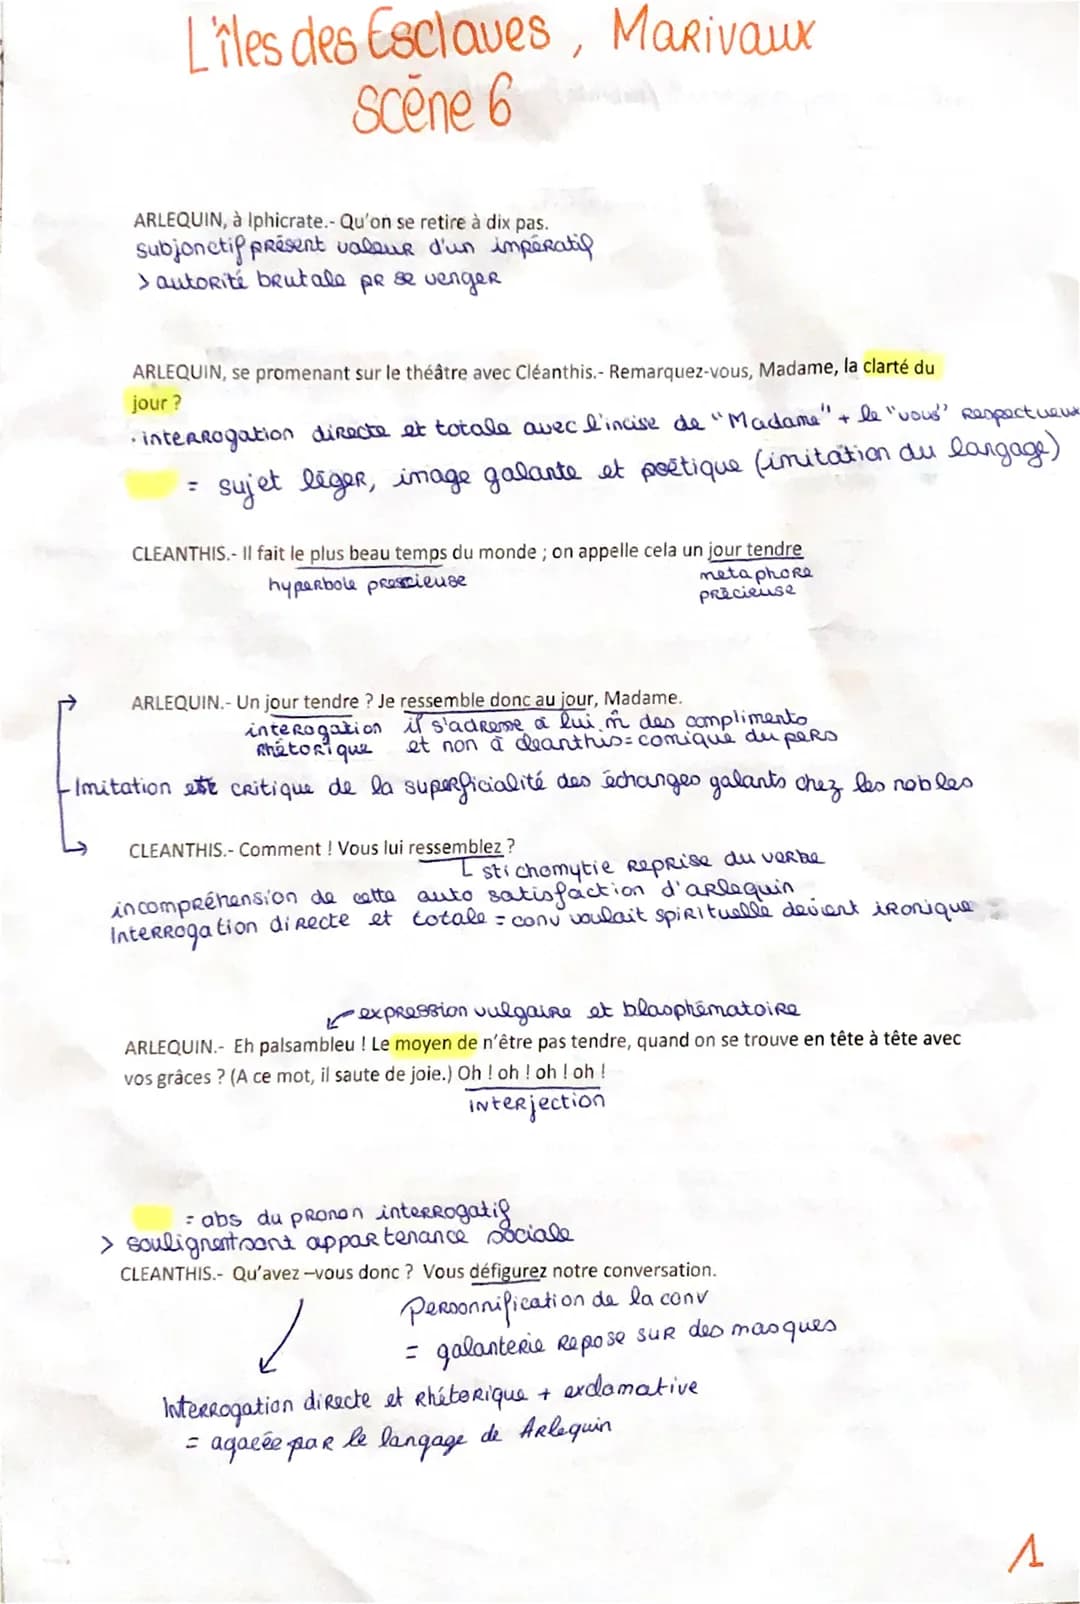 L'îles des Esclaves, Marivaux
scène 6
ARLEQUIN, à Iphicrate.- Qu'on se retire à dix pas.
subjonctif présent valeur d'un impératif
> autorité brutale pr se venger
ARLEQUIN, se promenant sur le théâtre avec Cléanthis.- Remarquez-vous, Madame, la clarté du
jour ?
. interrogation directe et totale avec l'incise de "Madame" + le "vous" Respectueux
= sujet léger, image galante et poétique (imitation du langage)
CLEANTHIS.- Il fait le plus beau temps du monde ; on appelle cela un jour tendre
hyperbole
métaphore
précieuse
ARLEQUIN.- Un jour tendre ? Je ressemble donc au jour, Madame.
interogation il s'adresse à lui m̂ des compliments
Rhétorique et non à cleanthis = comique du pers
Imitation critique de la superficialité des échanges galants chez les nobles
CLEANTHIS.- Comment ! Vous lui ressemblez ?
stichomytie reprise du verbe
incompréhension de cette auto satisfaction d'arlequin
Interrogation directe et totale = conv voulait spirituelle devient ironique
expression vulgaire et blasphématoire
ARLEQUIN.- Eh palsambleu ! Le moyen de n'être pas tendre, quand on se trouve en tête à tête avec
vos grâces ? (A ce mot, il saute de joie.) Oh ! oh ! oh ! oh !
interjection
= abs du pronon interrogatif
> appartenance sociale
CLEANTHIS.- Qu'avez –vous donc ? Vous défigurez notre conversation.
Personnification de la conv
= galanterie repose sur des masques
Interrogation directe et Rhétorique + exclamative
= agacée par le langage de Arlequin
1